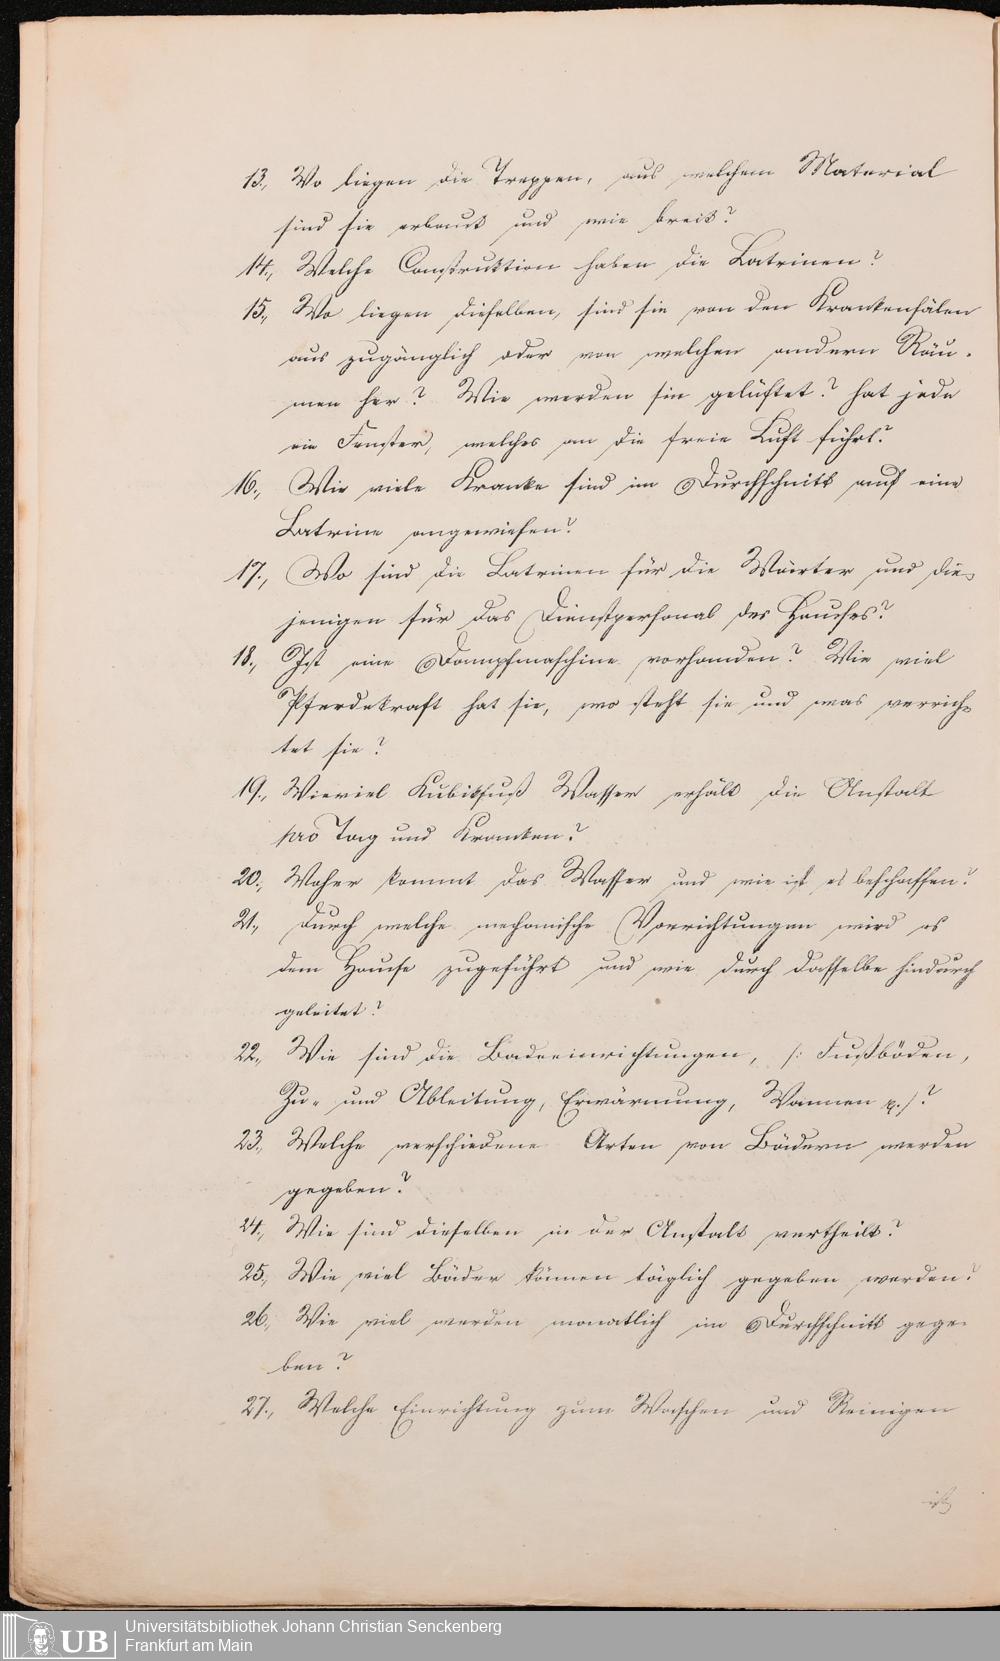 13., Wo liegen die Treppen, aus welchem Material
sind sie erbaut und wie breit?
14., Welche Construktion haben die Latrinen?
15., Wo liegen dieselben, sind sie von den Krankensälen
aus zugänglich oder von welchen andern Räu-
men her? Wie werden sie gelüftet? hat jede
ein Fenster, welches an die freie Luft führt?
16., Wie viele Kranke sind im Durchschnitt auf eine
Latrine angewiesen?
17., Wo sind die Latrinen für die Wärter und die-
jenigen für das Dienstpersonal des Hauses?
18., Ist eine Dampfmaschine vorhanden? Wie viel
Pferdekraft hat sie, wo steht sie und was verrich-
tet sie?
19., Wieviel Kubikfuß Wasser erhält die Anstalt
pro Tag und Kranken?
20., Woher kommt das Wasser und wie ist es beschaffen?
21., durch welche mechanische Vorrichtungen wird es
dem Hause zugeführt und wie durch dasselbe hindurch
geleitet?
22., Wie sind die Badeeinrichtungen, /: Fußböden,
Zu- und Ableitung, Erwärmung, Wannen pp. /?
23., Welche verschiedene Arten von Bädern werden
gegeben?
24., Wie sind dieselben in der Anstalt vertheilt?
25., Wie viel Bäder können täglich gegeben werden?
26., Wie viel werden monatlich im Durchschnitt gege-
ben?
27., Welche Einrichtung zum Waschen und Reinigen
ist
UB
Universitätsbibliothek Johann Christian Senckenberg
Frankfurt am Main